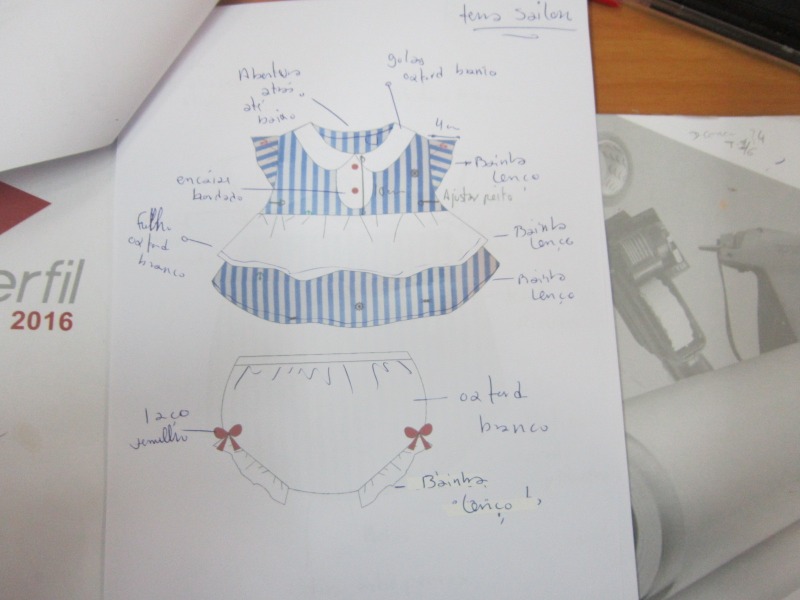 tema Sailor
Abertura
atrás
até
baixo
golas
oxford branco
4cm
Bainha
Lenço
encaixe
bordado
Ajustar peito
Folho
oxford
branco
Bainha
Lenço
Bainha
Lenço
erfil
2016
laço
vermelho
oxford
branco
Bainha
"Lenço"